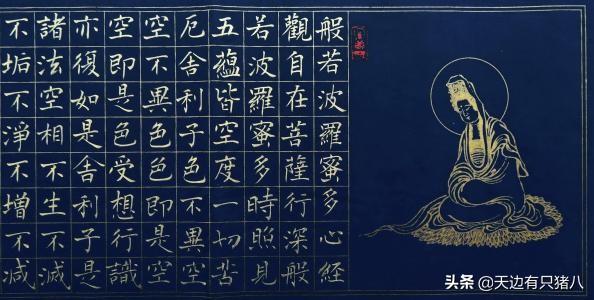 般若波羅蜜多心經
觀自在菩薩行深般
若波羅蜜多時照見
五蘊皆空度一切苦
厄舍利子色不異空
空不異色色即是空
空即是色受想行識
亦復如是舍利子是
諸法空相不生不滅
不垢不淨不增不減
头条 @天边有只猪八